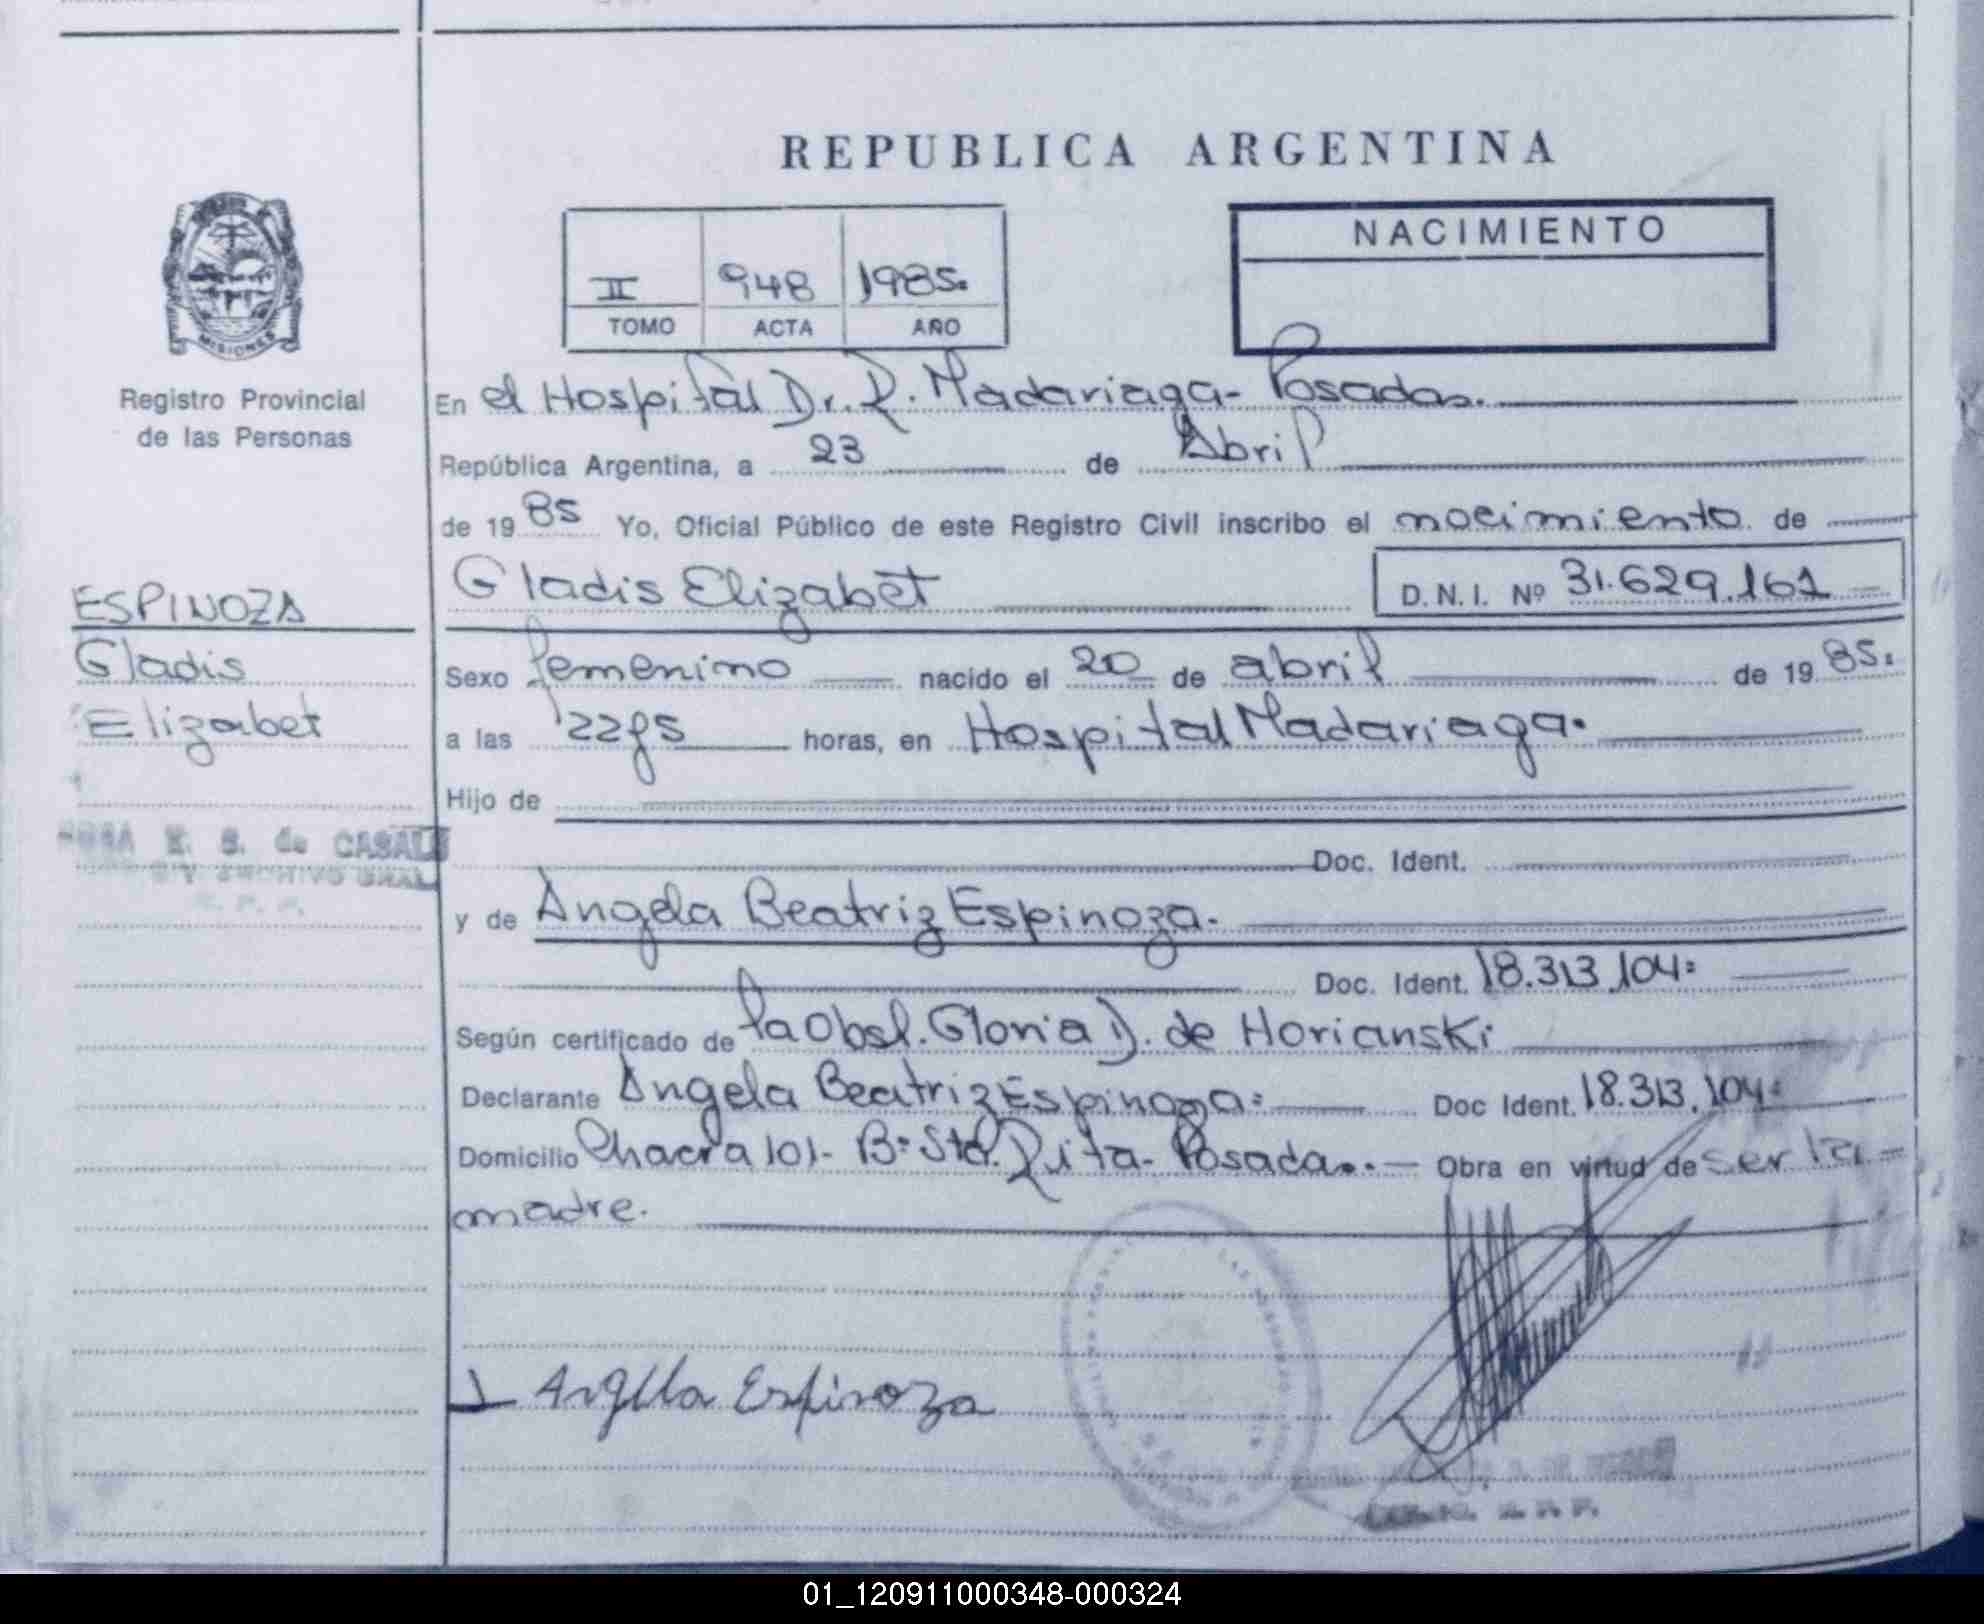 REPUBLICA ARGENTINA
NACIMIENTO
II 948 1985.
TOMO ACTA AÑO
MISIONES
Registro Provincial
de las Personas
En el Hospital Dr. R. Madariaga- Posadas.
República Argentina, a 23 de Abril
de 19 85 Yo, Oficial Público de este Registro Civil inscribo el nacimiento de
Gladis Elizabet D.N.I. Nº 31.629.161
ESPINOZA
Gladis
Elizabet
Sexo femenino nacido el 20 de abril de 19 85.
a las horas, en Hospital Madariaga.
Hijo de
Doc. Ident.
de CASALS
y de Angela Beatriz Espinoza.
Doc. Ident. 18.313.104=
Según certificado de la Obst. Gloria D. de Horianski
Declarante Angela Beatriz Espinoza= Doc Ident. 18.313.104=
Domicilio Chacra 101- Bº Sta. Rita- Posadas.- Obra en virtud de ser la
madre.
Angela Espinoza
01_120911000348-000324